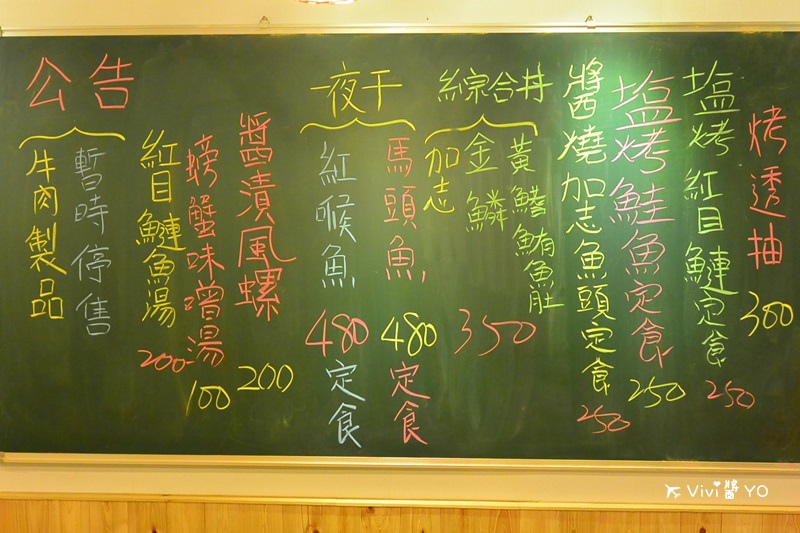 烤透抽 300
塩烤紅目鰱定食 250
塩烤鮭魚定食 250
醬燒加志魚頭定食 250
綜合丼
黃鰭鮪魚肚
金鱗
加志
350
一夜干
馬頭魚 480定食
紅喉魚 480定食
醬漬風螺 200
螃蟹味噌湯 100
紅目鰱魚湯 200
公告
暫時停售
牛肉製品
Vivi醬YO